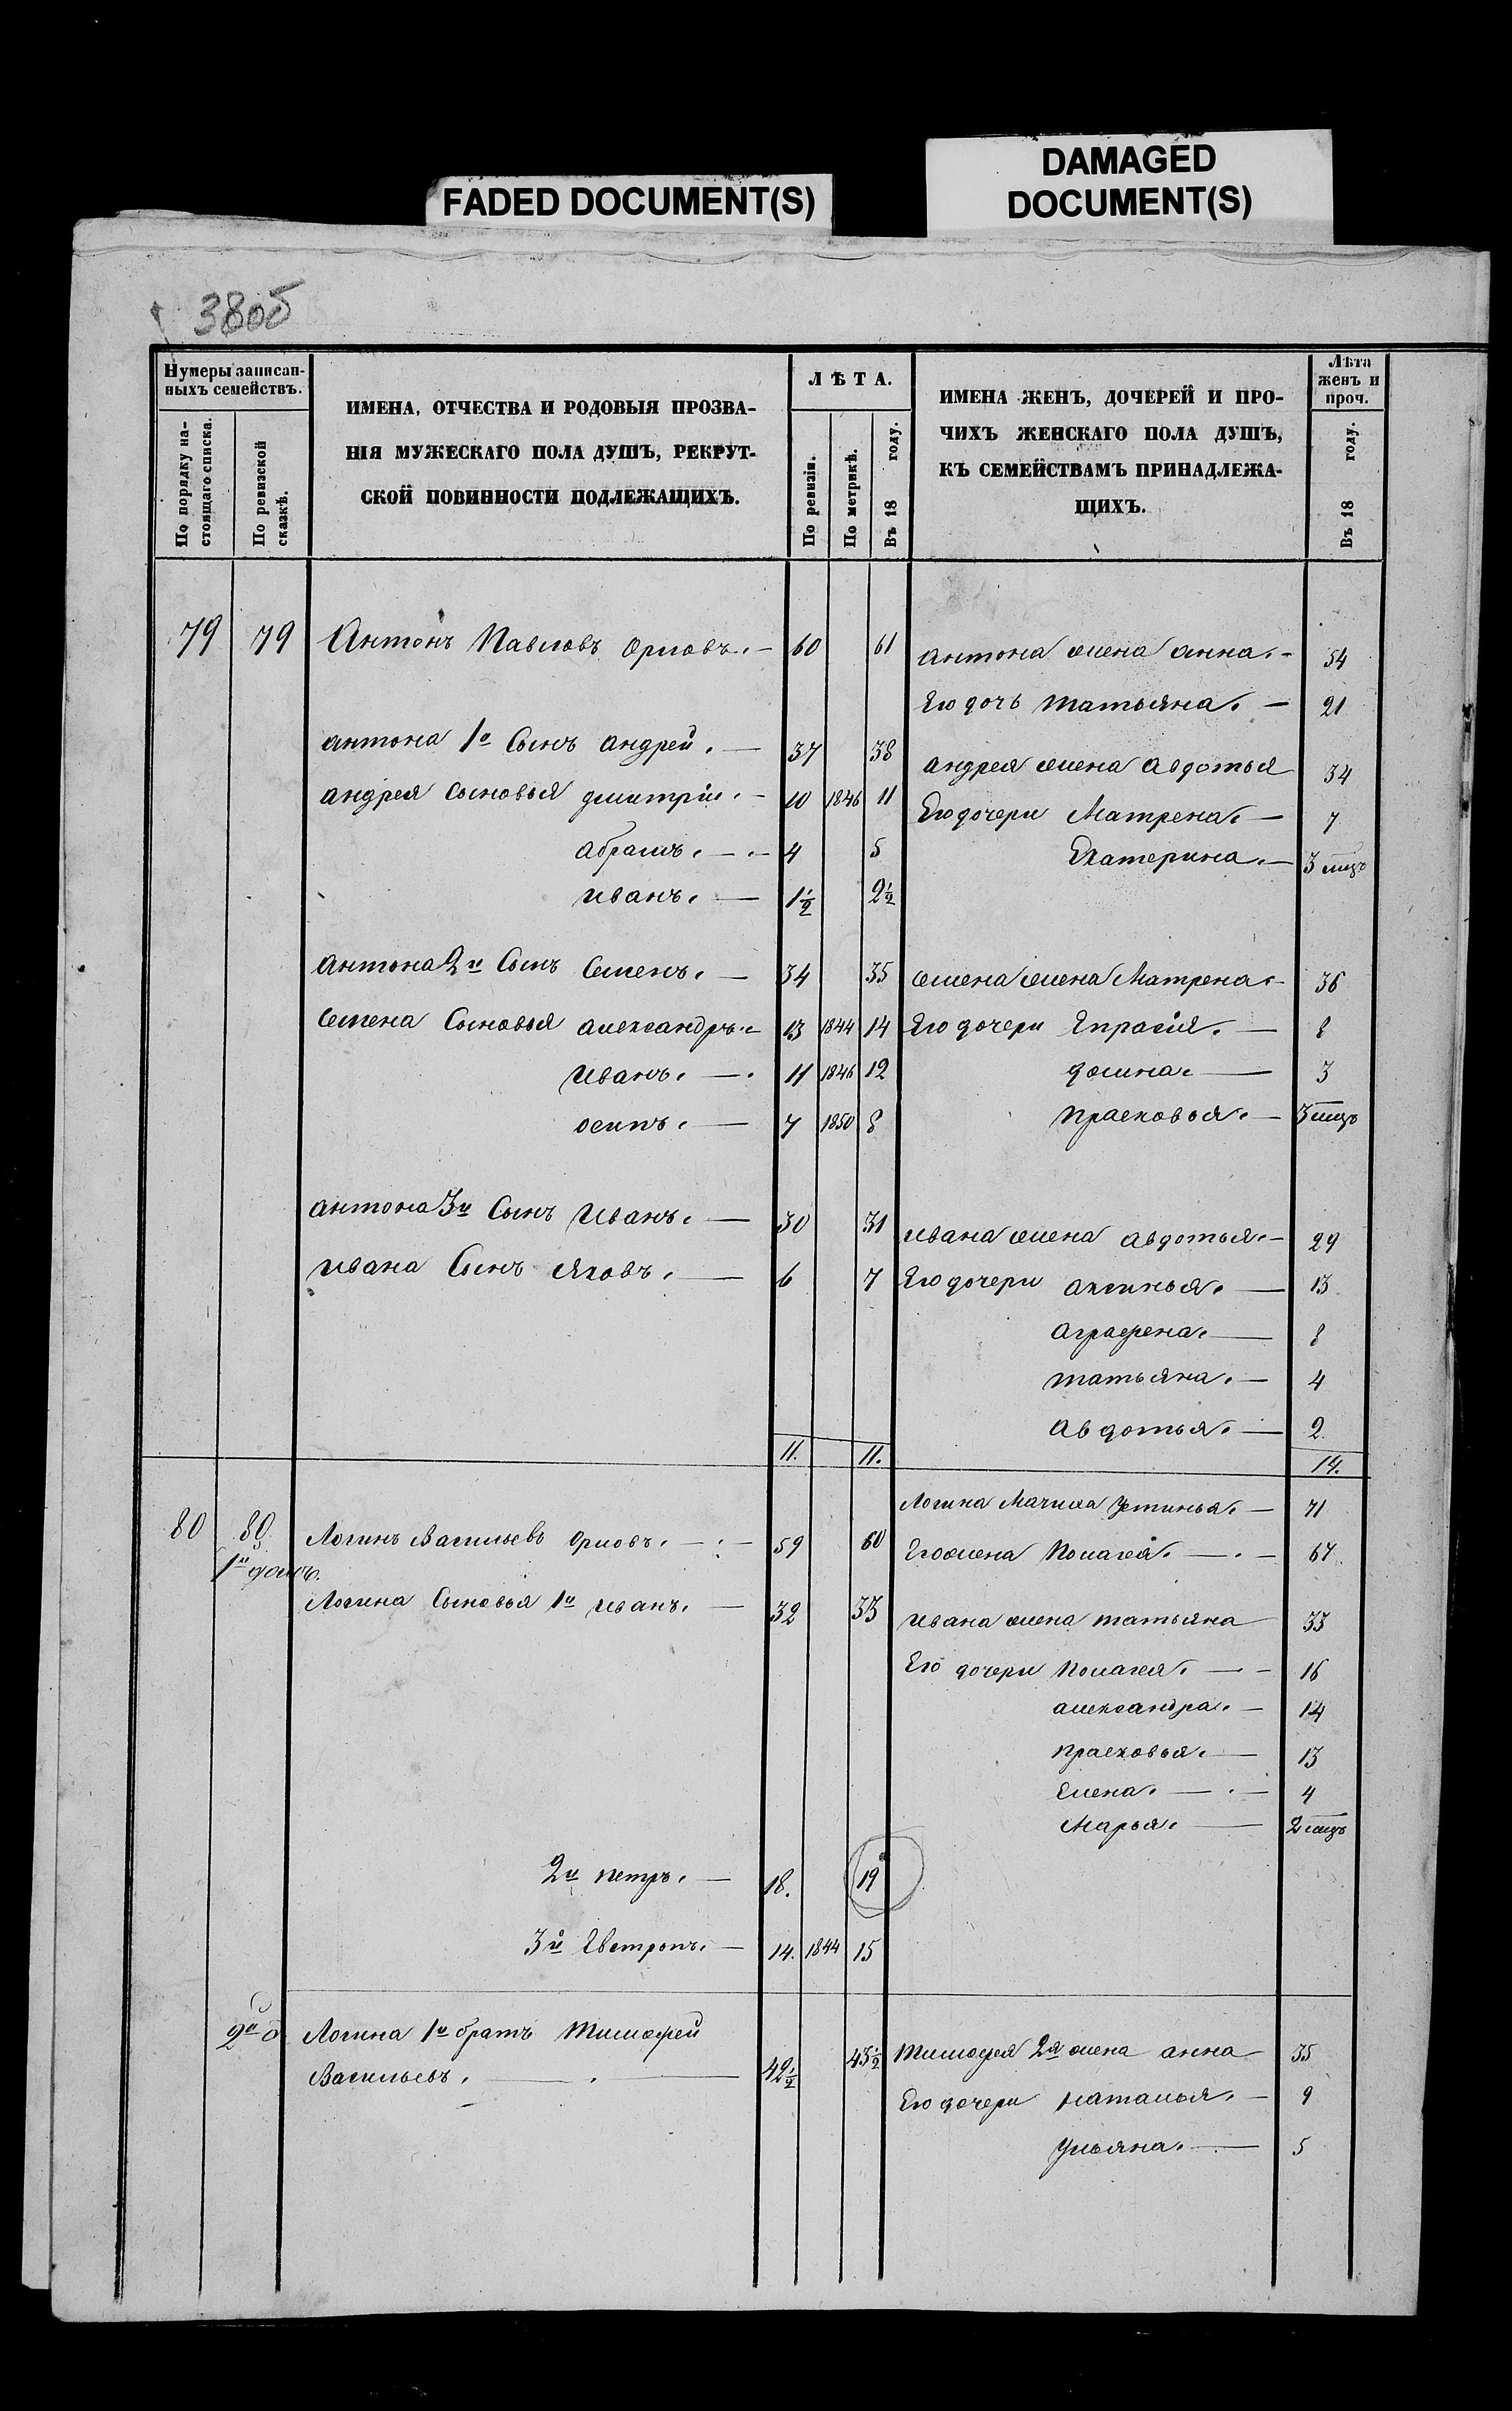 FADED DOCUMENT(S)
DAMAGED
DOCUMENT(S)
38об
Нумеры записан-
ныхъ семействъ.
По порядку на-
стоящаго списка.
По ревизской
сказкѣ.
ИМЕНА, ОТЧЕСТВА И РОДОВЫЯ ПРОЗВА-
НІЯ МУЖЕСКАГО ПОЛА ДУШЪ, РЕКРУТ-
СКОЙ ПОВИННОСТИ ПОДЛЕЖАЩИХЪ.
ЛѢТА.
По ревизіи.
По метрикѣ.
Въ 18 году.
ИМЕНА ЖЕНЪ, ДОЧЕРЕЙ И ПРО-
ЧИХЪ ЖЕНСКАГО ПОЛА ДУШЪ,
КЪ СЕМЕЙСТВАМЪ ПРИНАДЛЕЖА-
ЩИХЪ.
Лѣта
женъ и
проч.
Въ 18 году.
79 79 Антонъ Павловъ Орловъ. — 60 61 антона жена анна. — 54
Его дочь татьяна. — 21
антона 1й Сынъ андрей. — 37 38 андрея жена авдотья 34
андрея Сыновья дмитрій. — 10 1846 11 Его дочери Матрена. — 7
абрамъ. — 4 5 Екатерина. — 3 мцъ
иванъ. — 1½ 2½
антона 2й Сынъ Семенъ. — 34 35 семена жена Матрена — 36
Семена Сыновья александръ. — 13 1844 14 Его дочери Епрасія. — 8
иванъ. — 11 1846 12 домна. — 3
осипъ. — 7 1850 8 прасковья. — 3 мцъ
антона 3й Сынъ иванъ. — 30 31 ивана жена авдотья. — 29
ивана Сынъ яковъ. — 6 7 Его дочери аксинья. — 13
аграфена. — 8
татьяна. — 4
авдотья. — 2
11. 11. 14.
Логина Мачиха устинья. — 71
80 80 Логинъ Васильевъ Орловъ. — 59 60 Его жена Полагея. — 67
1й домъ.
Логина Сыновья 1й иванъ. — 32 33 ивана жена татьяна 33
Его дочери Полагея. — 16
александра. — 14
прасковья. — 13
елена. — 4
Марья. — 2 мцъ
2й петръ. — 18. 19
3й Евтропъ. — 14. 1844 15
2й д Логина 1й братъ тимофей
Васильевъ. — 42½ 43½ тимофея 2я жена анна 35
Его дочери наталья. — 9
ульяна. — 5